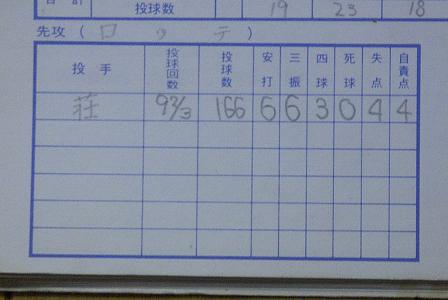 合計 投球数 19 23 18
先攻 ( ロ ッ テ )
投手 投球回数 投球数 安打 三振 四球 死球 失点 自責点
荘 9 2/3 166 6 6 3 0 4 4